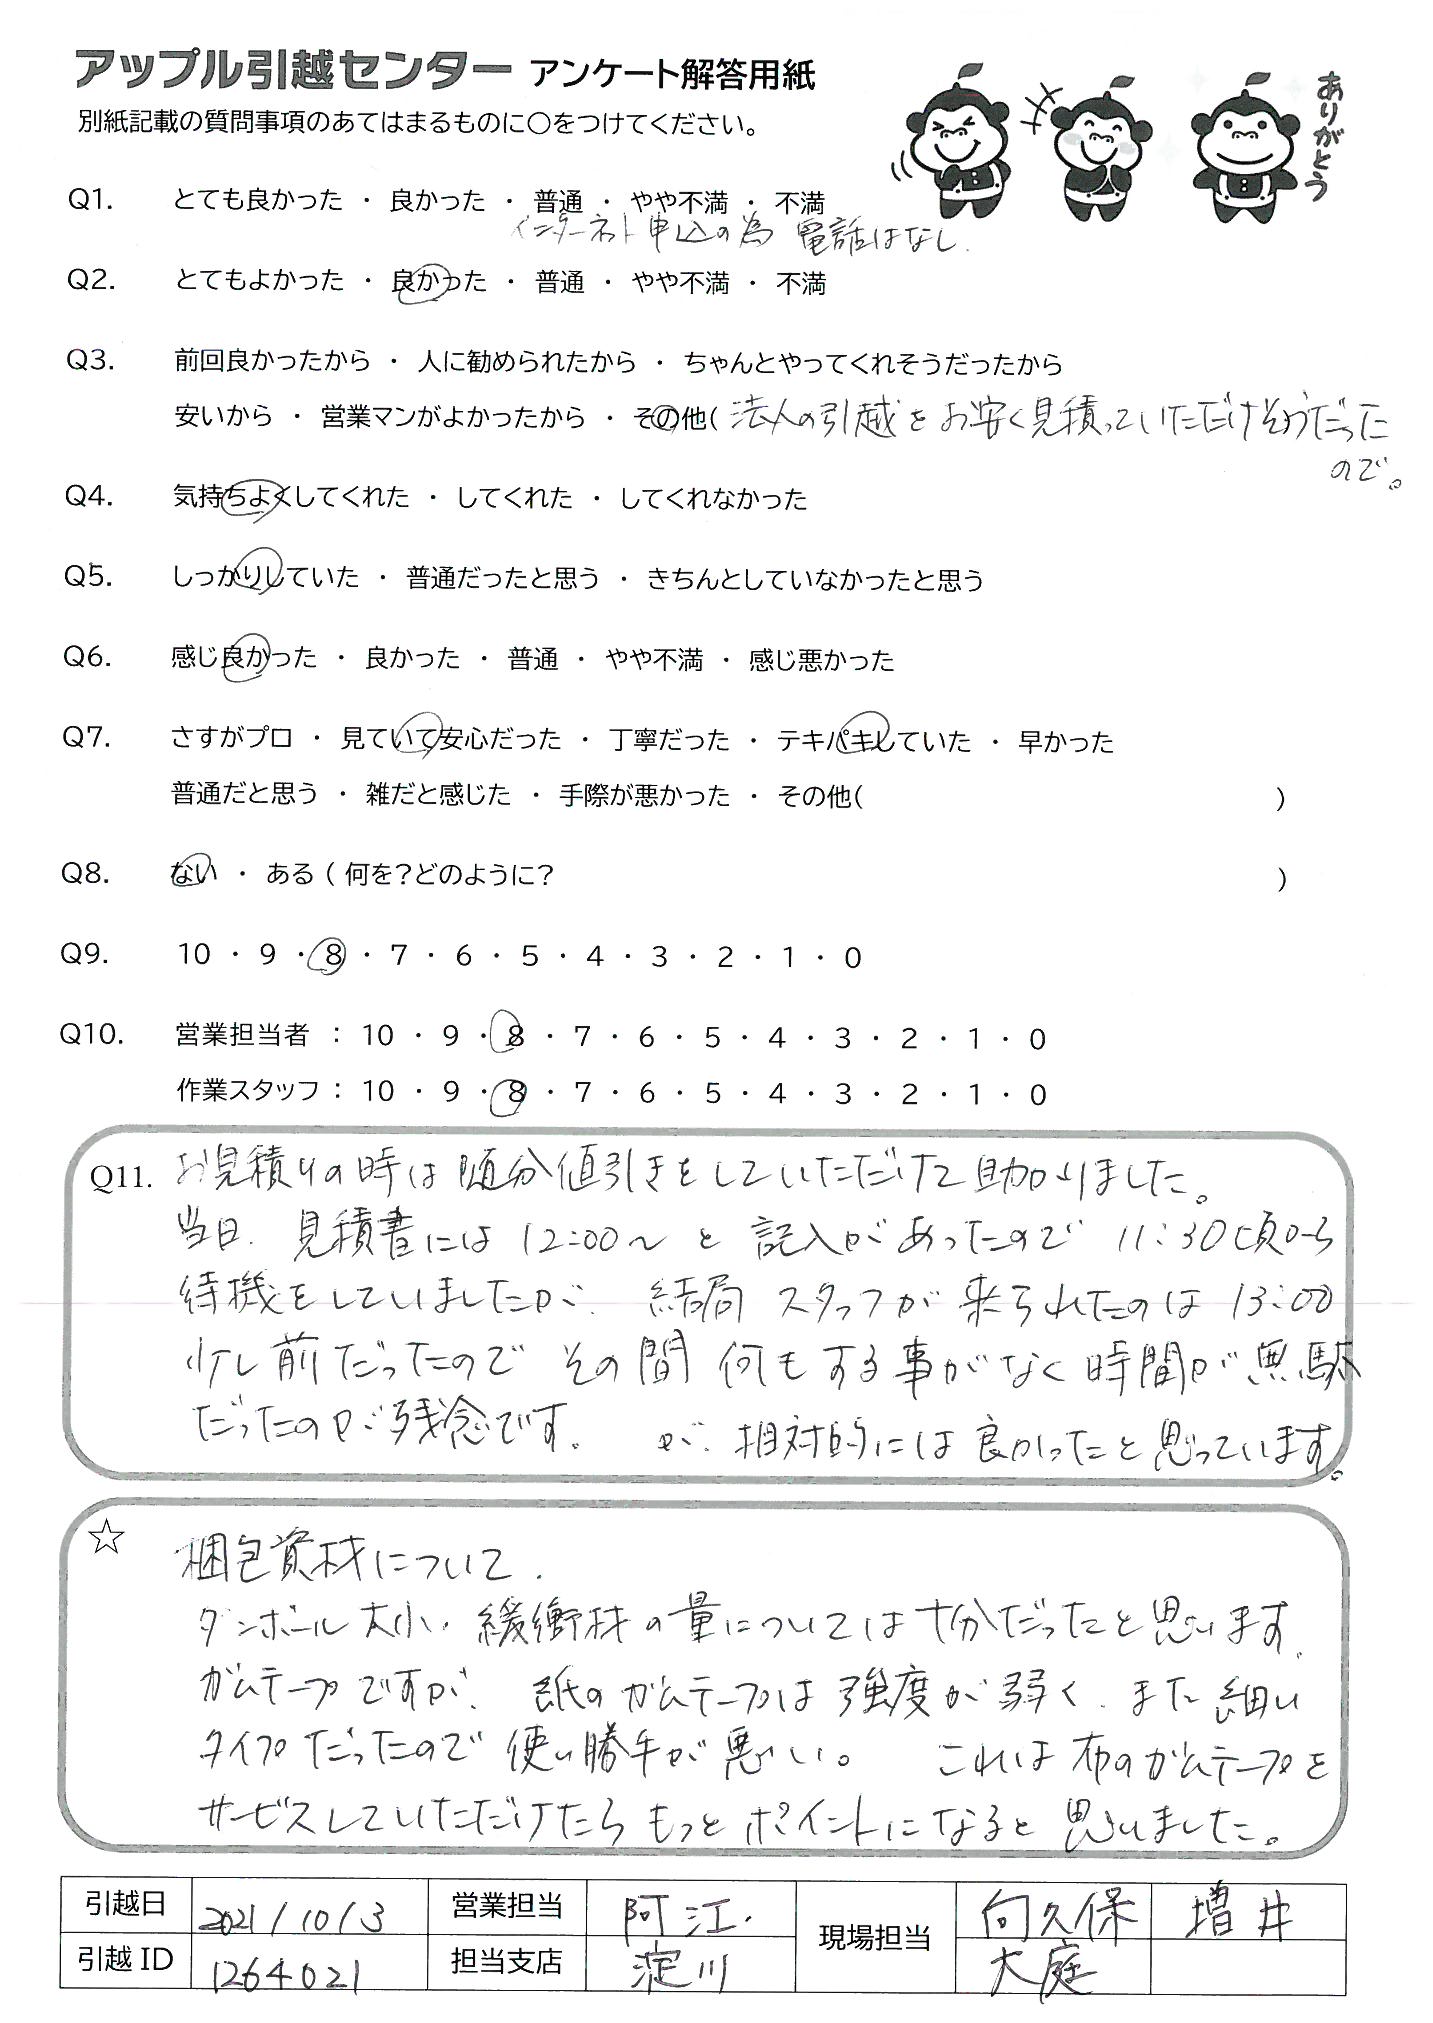 アップル引越センター アンケート解答用紙
別紙記載の質問事項のあてはまるものに○をつけてください。
ありがとう
Q1. とても良かった ・ 良かった ・ 普通 ・ やや不満 ・ 不満
インターネット申込の為 電話はなし.
Q2. とてもよかった ・ 良かった ・ 普通 ・ やや不満 ・ 不満
Q3. 前回良かったから ・ 人に勧められたから ・ ちゃんとやってくれそうだったから
安いから ・ 営業マンがよかったから ・ その他( 法人の引越をお安く見積っていただけそうだった
ので。
Q4. 気持ちよくしてくれた ・ してくれた ・ してくれなかった
Q5. しっかりしていた ・ 普通だったと思う ・ きちんとしていなかったと思う
Q6. 感じ良かった ・ 良かった ・ 普通 ・ やや不満 ・ 感じ悪かった
Q7. さすがプロ ・ 見ていて安心だった ・ 丁寧だった ・ テキパキしていた ・ 早かった
普通だと思う ・ 雑だと感じた ・ 手際が悪かった ・ その他( )
Q8. ない ・ ある ( 何を?どのように? )
Q9. 10 ・ 9 ・ 8 ・ 7 ・ 6 ・ 5 ・ 4 ・ 3 ・ 2 ・ 1 ・ 0
Q10. 営業担当者 : 10 ・ 9 ・ 8 ・ 7 ・ 6 ・ 5 ・ 4 ・ 3 ・ 2 ・ 1 ・ 0
作業スタッフ : 10 ・ 9 ・ 8 ・ 7 ・ 6 ・ 5 ・ 4 ・ 3 ・ 2 ・ 1 ・ 0
Q11. お見積りの時は随分値引きをしていただけて助かりました。
当日. 見積書には12:00〜と記入があったので 11:30頃から
待機をしていましたが. 結局 スタッフが来られたのは 13:00
少し前だったので その間 何もする事がなく時間が無駄
だったのが残念です。 が. 相対的には良かったと思っています。
☆ 梱包資材について.
ダンボール大小. 緩衝材の量については十分だったと思います.
ガムテープですが. 紙のガムテープは強度が弱く. また細い
タイプだったので使い勝手が悪い。 これは布のガムテープを
サービスしていただけたらもっとポイントになると思いました。
引越日 2021/10/3 営業担当 阿江. 現場担当 向久保 増井
引越ID 1264021 担当支店 淀川 大庭